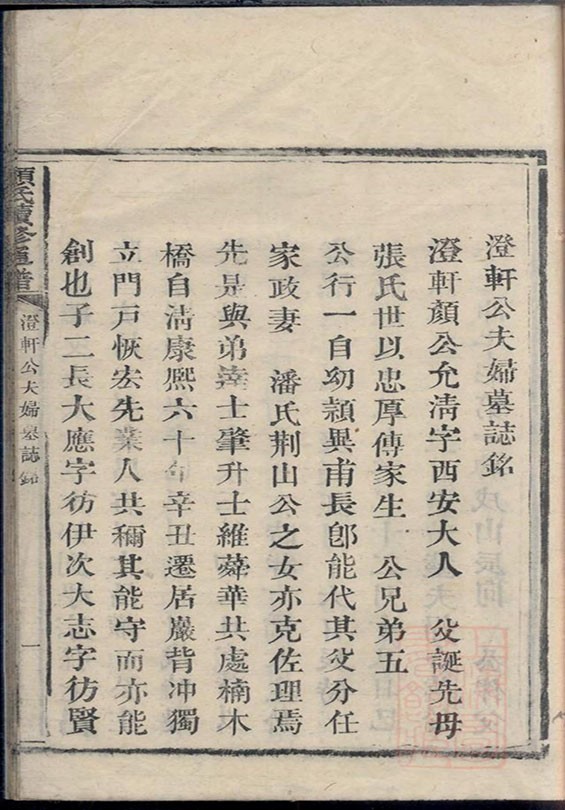 澄軒公夫婦墓誌銘
澄軒顏公允淸字西安大人 父誕先母
張氏世以忠厚傳家生 公兄弟五
公行一自幼穎異甫長卽能代其父分任
家政妻 潘氏荆山公之女亦克佐理焉
先是與弟達士肇升士維蕣華共處楠木
橋自淸康熙六十年辛丑遷居巖背冲獨
立門戸恢宏先業人共稱其能守而亦能
創也子二長大應字彷伊次大志字彷賢
顏氏續修通譜
澄軒公夫婦墓誌銘
一